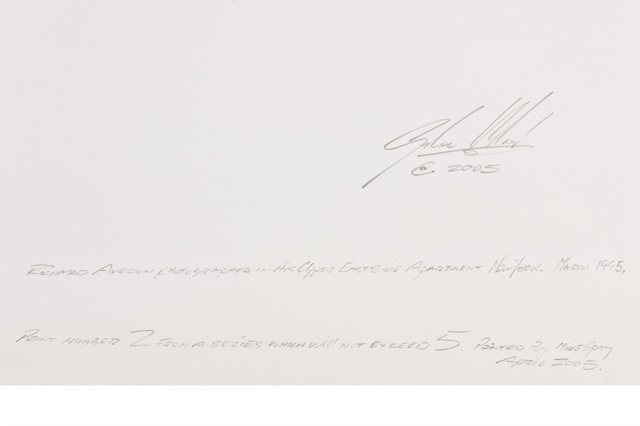 © 2005
Richard Avedon photographed in His Upper Eastside Apartment. New York. March 1995.
Print number 2 from a series which will not exceed 5. Printed By Mike Spry
April 2005.